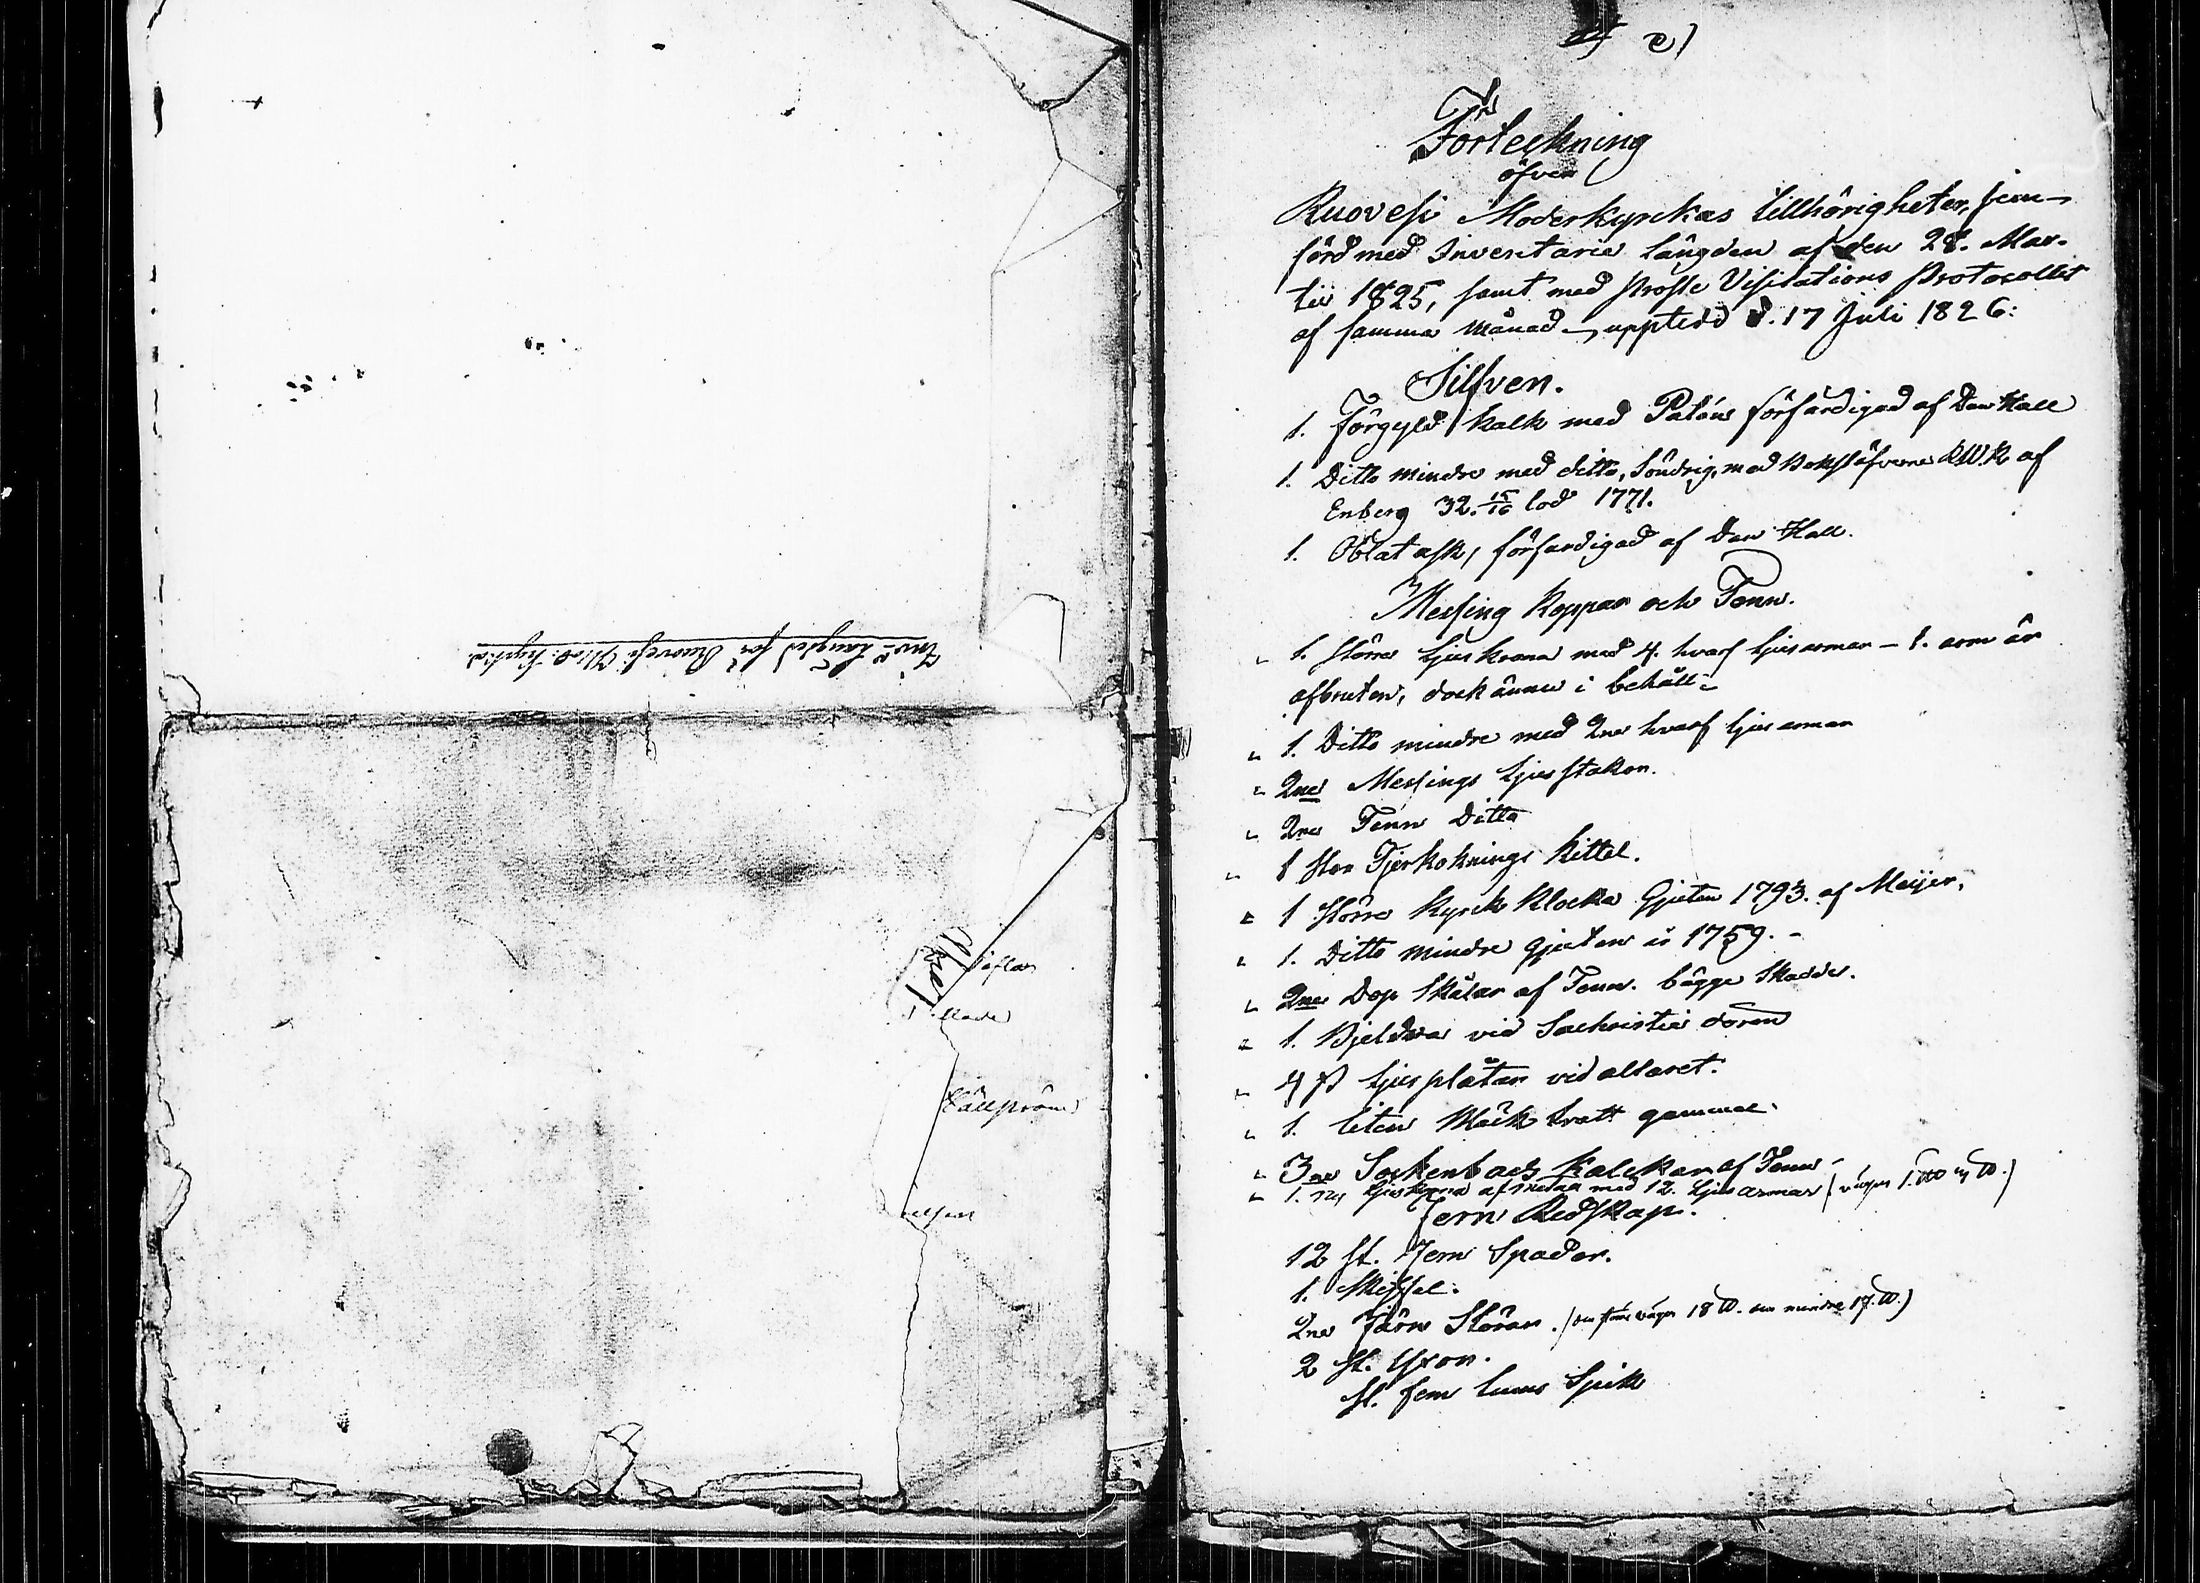 Inv: Längd för Ruovesi Mod: Kyrka.
e)
Förteckning
öfver
Ruovesi Moderkyrckas tillhörigheter, jem-
förd med Inventarie längden af den 28. Mar-
tii 1825, samt med Prosste Visitations Protocollet
af samma månad — upptedd d. 17 Juli 1826:
Silfver.
1. Förgyld kalk med Patén förfärdigad af Dan Hall
1. Ditto mindre med ditto, söndrig, med Bokstäfverne R.W.K. af
Enberg 32. 15/16 lod 1771.
1. Oblat ask, förfardigad af Dan Hall.
Messing Koppar och Tenn.
1. större Ljus krona med 4. hvarf ljusarmar — 1. arm är
afbruten, dock ännu i behåll:
1. Ditto mindre med 2ne hvarf ljus armar
2ne Messings Ljus stakar.
2ne Tenn Ditto
1 stor Tjärkoknings kittel.
1 större Kyrck Klocka Gjuten 1793. af Meijer.
1. Ditto mindre gjuten år 1759. -
2ne Dop skålar af Tenn. bägge skadde.
1. Bjeldra vid Sachristie dören
4 st ljusplåtar vid altaret.
1. liten Bläck tratt gammal.
3ne Sockenbuds kalckar af Tenn -
1. ny ljuskrona af med 12. ljus armar (väger 1. )
Jern Redskap.
12 st. Jern Spadar.
1. Skyffel.
2ne Järn Störar. (den större väger 18 ℔. den mindre 17. ℔.)
2 st. Yxor.
st. fem tums Spik